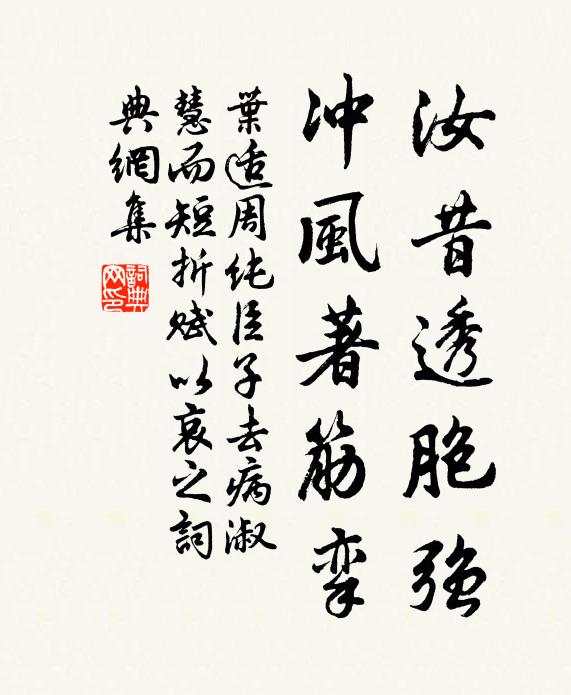 汝昔透胞強
沖風著筋挛
葉适周純臣子去病淑
慧而短折賦以哀之詞
典網集
詞典网印